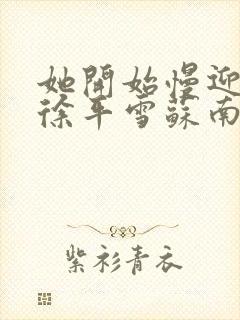 她開始慢迎
徐年雪蘇南
紫衫青衣